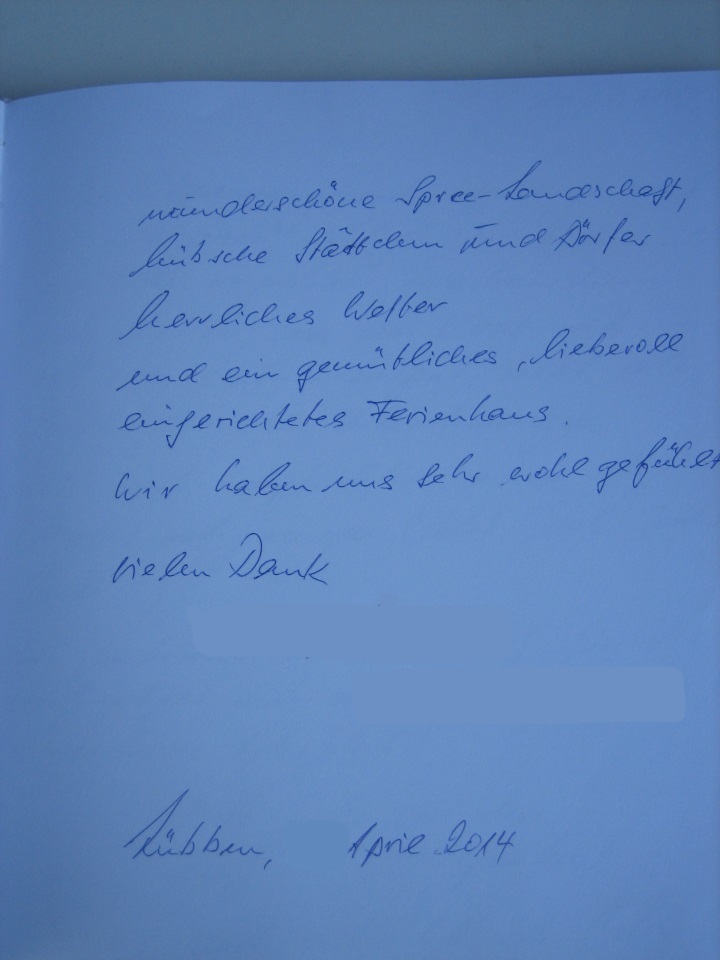 wunderschöne Spree-Landschaft,
hübsche Städtchen und Dörfer
herrliches Wetter
und ein gemütliches, liebevoll
eingerichtetes Ferienhaus.
Wir haben uns sehr wohl gefühlt
vielen Dank
Lübben, April 2014